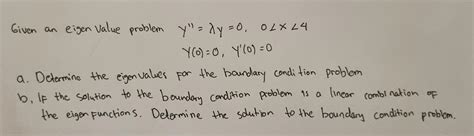 Given an eigen value problem y'' = λy = 0, 0 < x < 4
y(0) = 0, y'(0) = 0
a. Determine the eigenvalues for the boundary condition problem
b. If the solution to the boundary condition problem is a linear combination of
the eigen functions. Determine the solution to the boundary condition problem.